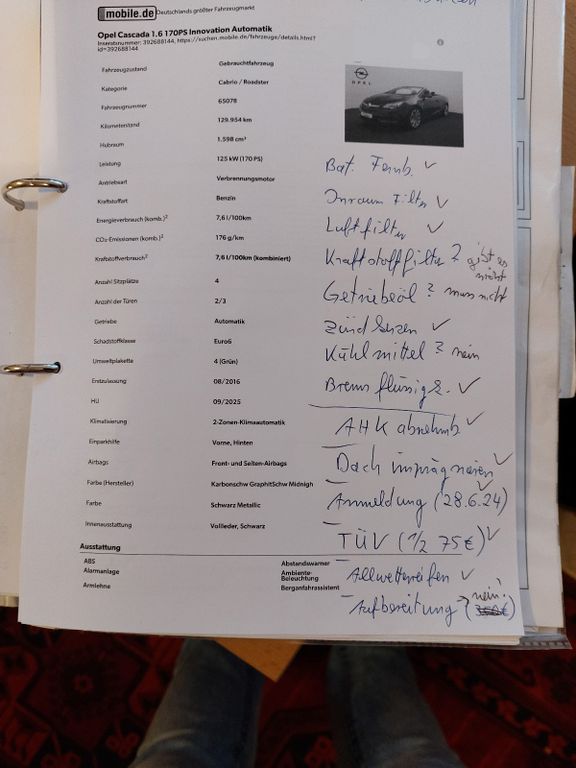 mobile.de Deutschlands größter Fahrzeugmarkt
Opel Cascada 1.6 170PS Innovation Automatik
Inseratsnummer: 392688144, https://suchen.mobile.de/fahrzeuge/details.html?
id=392688144
Fahrzeugzustand Gebrauchtfahrzeug
Kategorie Cabrio / Roadster
Fahrzeugnummer 65078
Kilometerstand 129.954 km
Hubraum 1.598 cm³
Leistung 125 kW (170 PS)
Antriebsart Verbrennungsmotor
Kraftstoffart Benzin
Energieverbrauch (komb.)² 7,6 l/100km
CO₂-Emissionen (komb.)² 176 g/km
Kraftstoffverbrauch² 7,6 l/100km (kombiniert)
Anzahl Sitzplätze 4
Anzahl der Türen 2/3
Getriebe Automatik
Schadstoffklasse Euro6
Umweltplakette 4 (Grün)
Erstzulassung 08/2016
HU 09/2025
Klimatisierung 2-Zonen-Klimaautomatik
Einparkhilfe Vorne, Hinten
Airbags Front- und Seiten-Airbags
Farbe (Hersteller) Karbonschw GraphitSchw Midnigh
Farbe Schwarz Metallic
Innenausstattung Vollleder, Schwarz
Ausstattung
ABS Abstandswarner
Alarmanlage Ambiente-
Beleuchtung
Armlehne Berganfahrassistent
OPEL
Bat. Fernb. ✓
Inraum Filter ✓
Luftfilter ✓
Kraftstofffilter? gibt es
nicht
Getriebeöl? muss nicht
Zündkerzen ✓
Kühlmittel? nein
Bremsflüssigk. ✓
AHK abnehmb. ✓
– Dach imprägnieren ✓
– Anmeldung (28.6.24) ✓
– TÜV (1/2 75€) ✓
– Allwetterreifen ✓
– Aufbereitung → nein!